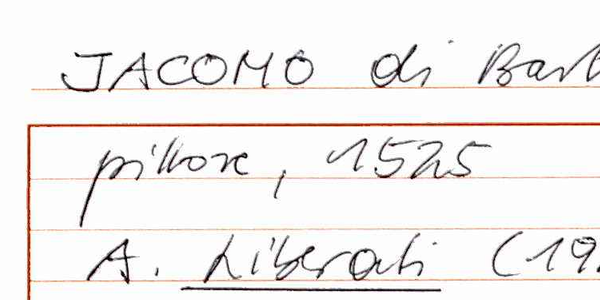 JACOMO di Bart
pittore, 1525
A. Liberati (19